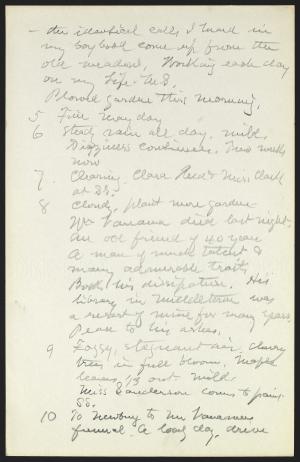 - the identical calls I heard in
my boyhood come up from the
old meadow. Working each day
on my Life-M.S.
Plowed garden this morning.
5 Fine May day
6 Steady rain all day, mild.
Dizziness continues. Two weeks
now
7. Clearing. Clara Reed & Miss Clark
at SS.
8 Cloudy, plant more garden-
Wm Vanamee died last night.
An old friend of 40 years
A man of much talent &
many admirable traits
Both his dissipation. His
library in Middletown was
a resort of mine for many years.
Peace to his ashes.
9 Foggy, stagnant air, cherry
trees in full bloom, maple
leaves 1/3 out mild.
Miss Sanderson comes to paint
SS.
10 To Newburg to Mr Vanamees
funeral. A lovely day, drive